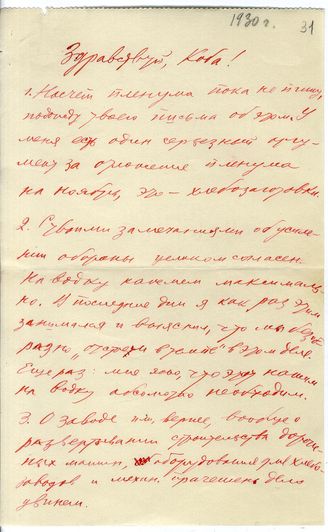 1930 г.
31
Здравствуй, Коба!
1. Насчет пленума пока не пишу,
подожду твоего письма об этом. У
меня есть один серьезный аргу-
мент за отложение пленума
на ноябрь, это – хлебозаготовки.
2. С твоими замечаниями об усиле-
нии обороны целиком согласен.
На водку нажмем максималь-
но. В последние дни я как раз этим
занимался и выяснил, что мы безоб-
разно отстали в этом деле.
Еще раз: мне ясно, что нажим
на водку абсолютно необходим.
3. О заводе или, вернее, вообще о
развертывании строительства дорож-
ных машин, оборудования для хлебо-
заводов и механ. прачешен дело
двинем.